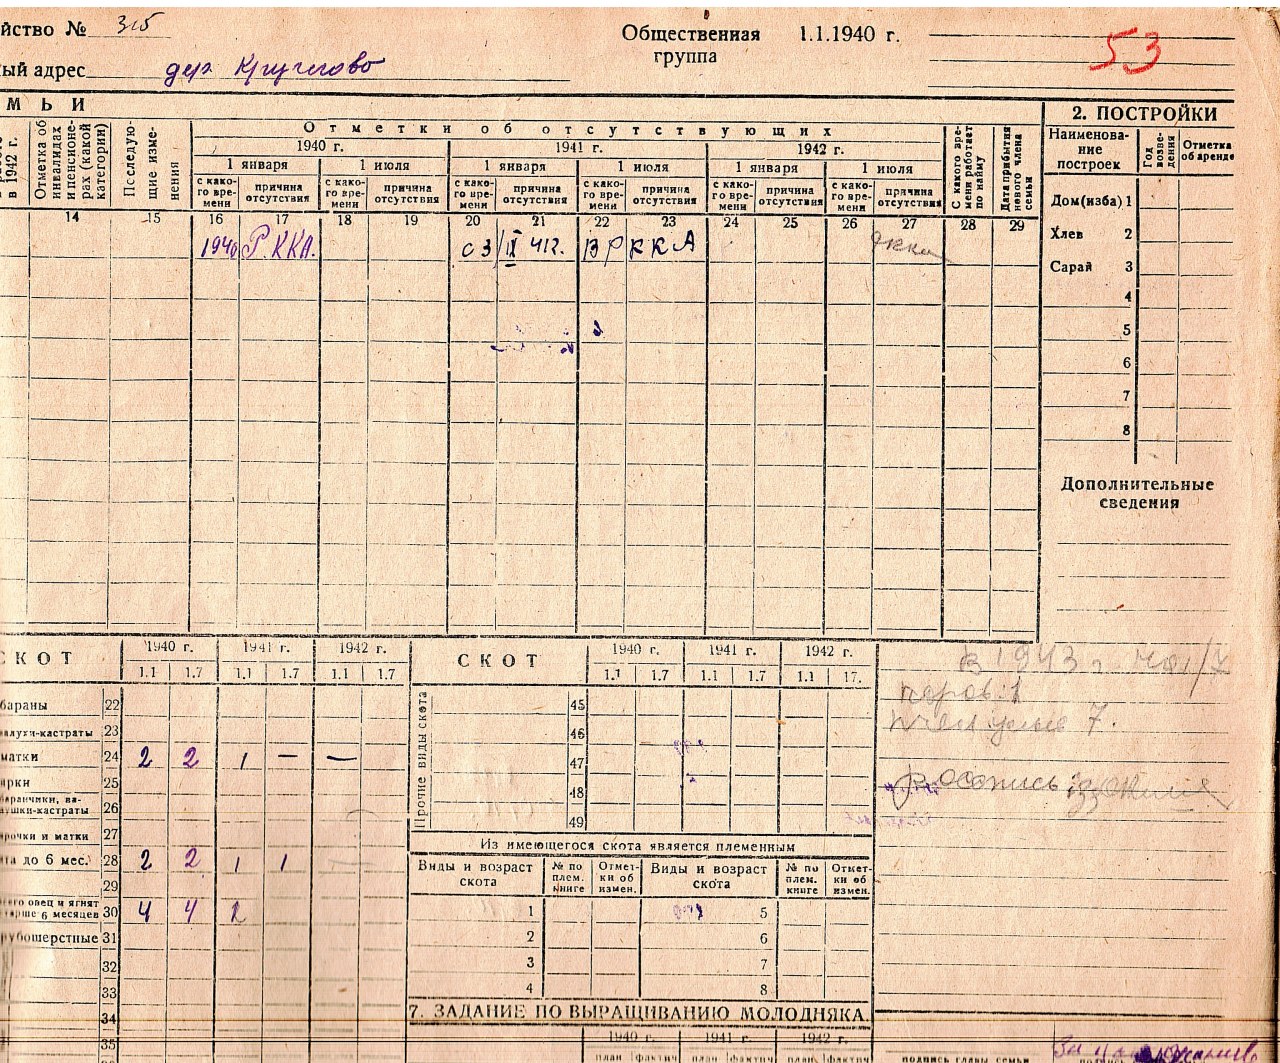 йство № 315
Общественная группа 1.1.1940 г.
53
ый адрес дер.
М Ь И
2. ПОСТРОЙКИ
в 1942 г.
Отметка об инвалидах и пенсионерах (какой категории)
Последующие изменения
Отметки об отсутствующих
1940 г. 1941 г. 1942 г.
1 января 1 июля 1 января 1 июля 1 января 1 июля
с како-го вре-мени причина отсутствия с како-го вре-мени причина отсутствия с како-го вре-мени причина отсутствия с како-го вре-мени причина отсутствия с како-го вре-мени причина отсутствия с како-го вре-мени причина отсутствия
С какого вре-мени работает по найму
Дата прибытия нового члена семьи
Наименова-ние построек
Год возве-дения
Отметка об аренде
14 15 16 17 18 19 20 21 22 23 24 25 26 27 28 29
1940 Р.ККА. с 3/IX 41г. В РККА
Дом(изба) 1
Хлев 2
Сарай 3
4
5
6
7
8
Дополнительные сведения
СКОТ 1940 г. 1941 г. 1942 г.
1.1 1.7 1.1 1.7 1.1 1.7
бараны 22
валухи-кастраты 23
матки 24 2 2 1 — —
ярки 25
баранчики, ва-
лушки-кастраты 26
ярочки и матки 27
та до 6 мес. 28 2 2 1 1
29
его овец и ягнят
тарше 6 месяцев 30 4 4 2
рубошерстные 31
32
33
34
35
СКОТ 1940 г. 1941 г. 1942 г.
1.1 1.7 1.1 1.7 1.1 17.
Прочие виды скота
45
46
47
48
49
Из имеющегося скота является племенным
Виды и возраст скота № по плем. книге Отмет-ки об измен. Виды и возраст скота № по плем. книге Отмет-ки об измен.
1 5
2 6
3 7
4 8
7. ЗАДАНИЕ ПО ВЫРАЩИВАНИЮ МОЛОДНЯКА
1940 г. 1941 г. 1942 г.
план фактич план фактич план фактич
в 1943 г.
7.
подпись главы семьи